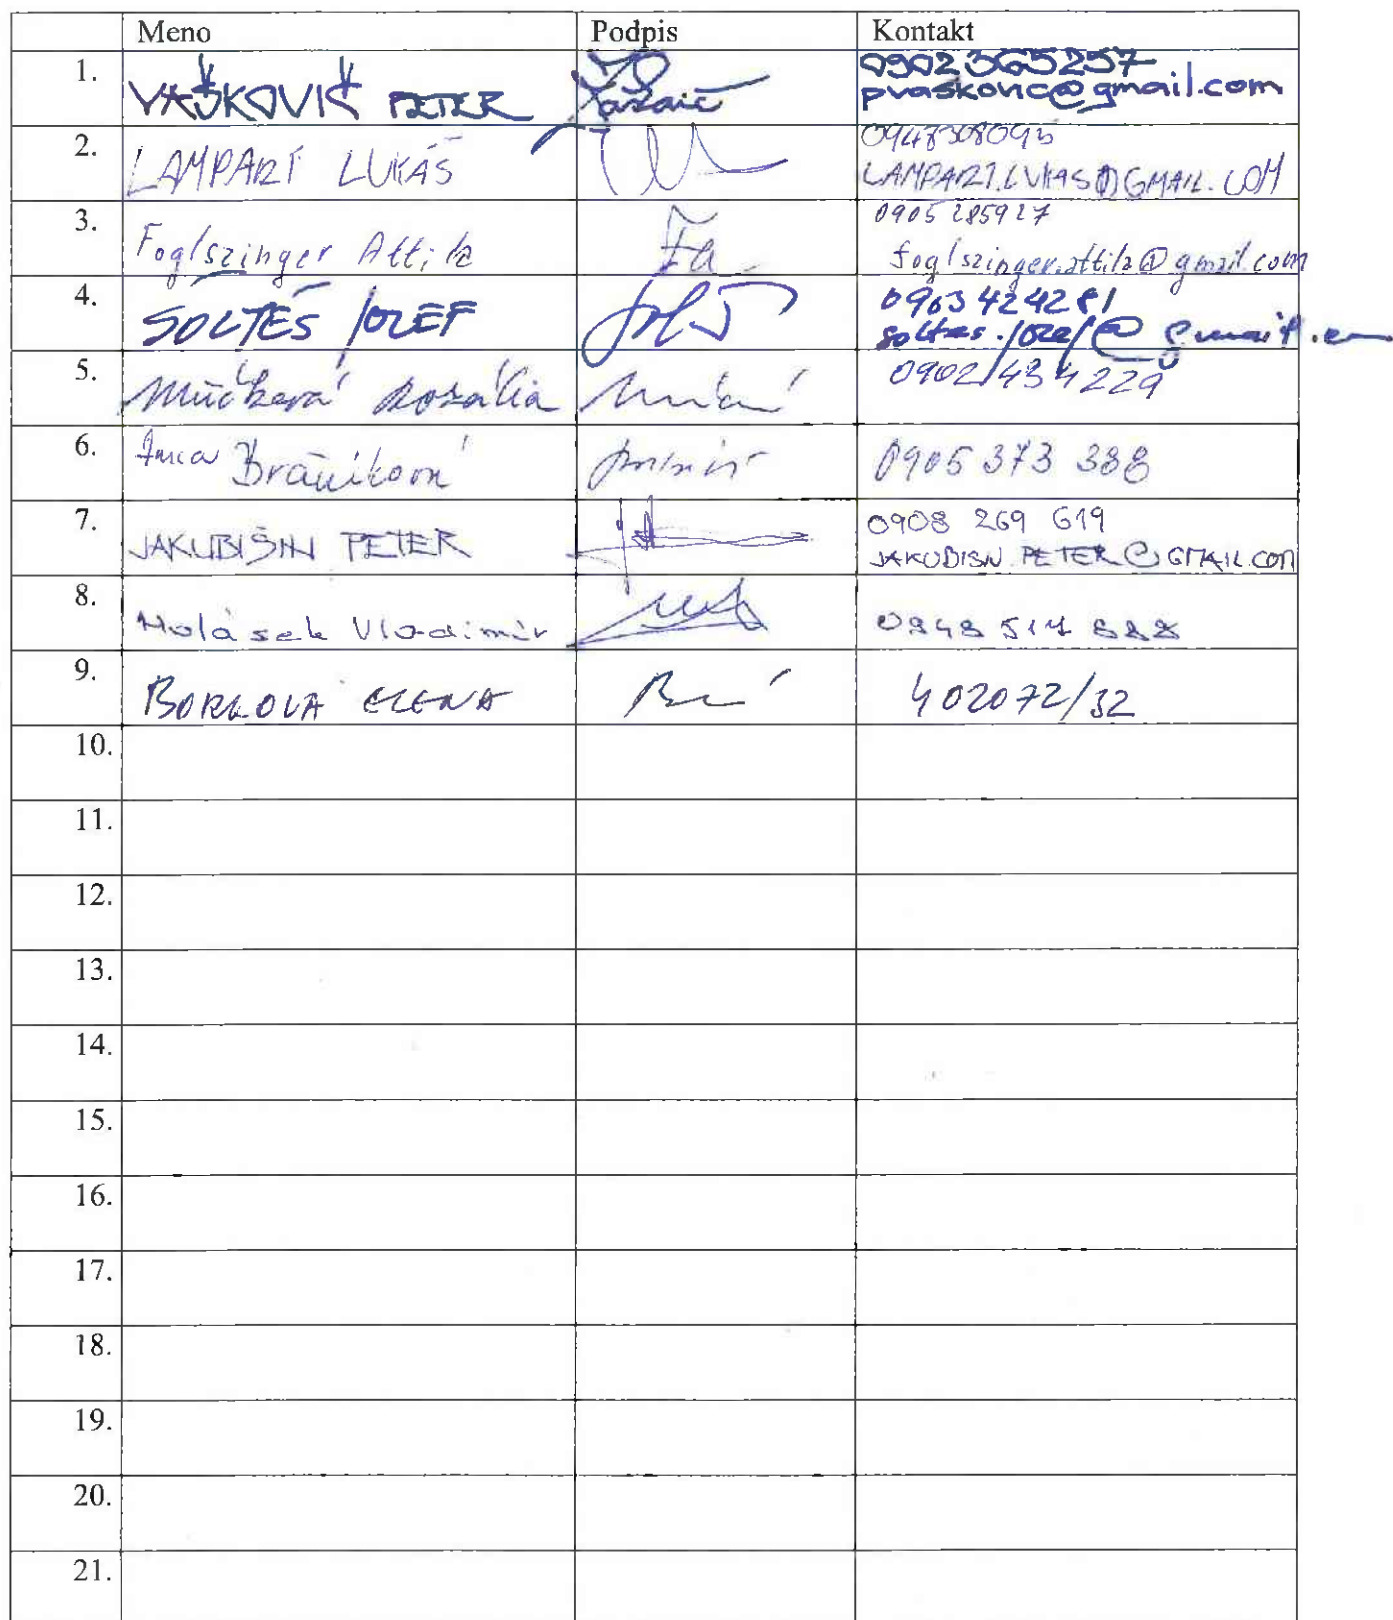 Meno Podpis Kontakt
1. VAŠKOVIČ PETER 0902 365257
pvaskovic@gmail.com
2. LAMPART LUKÁŠ 0947308093
LAMPART.LUKAS@GMAIL.COM
3. Foglszinger Attila 0905 285927
foglszinger.attila@gmail.com
4. SOLTÉS JOZEF 0903 424281
soltes.jozef@gmail.com
5. Múčková Rozália 0902/434229
6. Anna 0905 373 388
7. JAKUBIŠIN PETER 0908 269 619
JAKUBISIN.PETER@GMAIL.COM
8. Holásek Vladimír 0948 517 888
9. ELENA 402072/32
10.
11.
12.
13.
14.
15.
16.
17.
18.
19.
20.
21.